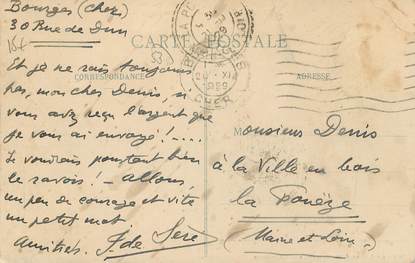 Bourges (Cher)
30 Rue de Dun
CARTE POSTALE
CORRESPONDANCE
ADRESSE
CHER
Et je ne sais toujours
pas, mon cher Denis, si
vous avez reçu l'argent que
je vous ai envoyé! ....
Je voudrais pourtant bien
le savoir! - allons
un peu de courage et vite
un petit mot
Amitiés. J de Sère
Monsieur Denis
à la Ville en bois
la Pouëze
(Maine et Loire)